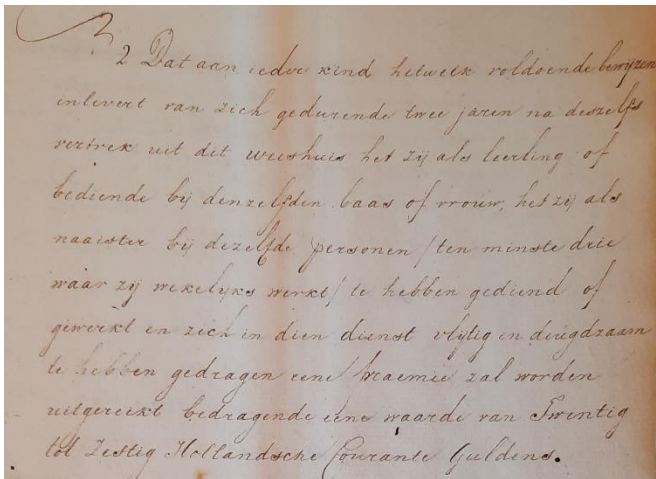 2 Dat aan ieder kind hetwelk voldoende bewijzen
inlevert van zich gedurende twee jaren na deszelfs
vertrek uit dit weeshuis het zij als leerling of
bediende bij denzelfden baas of vrouw, het zij als
naaister bij dezelfde personen / ten minste drie
waar zij wekelijks werkt / te hebben gediend of
gewerkt en zich in dien dienst vlijtig en deugdzaam
te hebben gedragen eene praemie zal worden
uitgereikt bedragende eene waarde van Twintig
tot Zestig Hollandsche Courante Guldens.